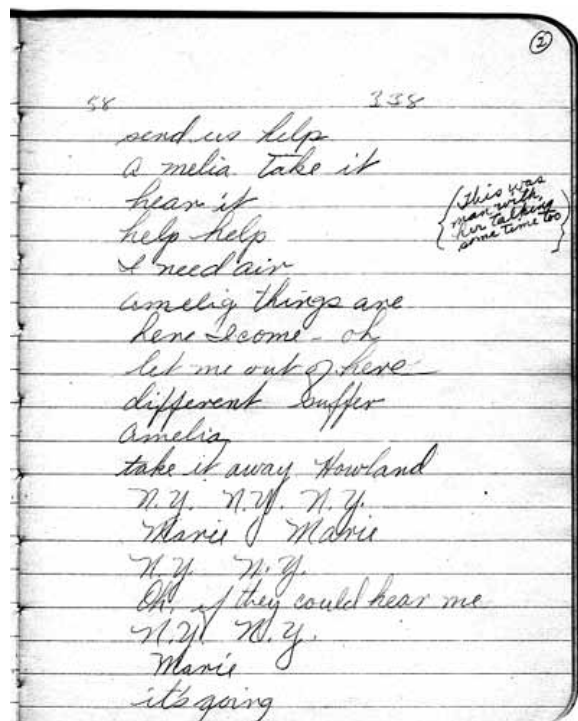 2
58 338
send us help
a melia take it
hear it
help help
I need air
amelia things are
here I come - oh
let me out of here
different suffer
amelia
take it away Howland
N.Y. N.Y. N.Y.
Marie Marie
N.Y. N.Y.
Oh, if they could hear me
N.Y. N.Y.
Marie
it's going
This was
man with
her talking
some time too